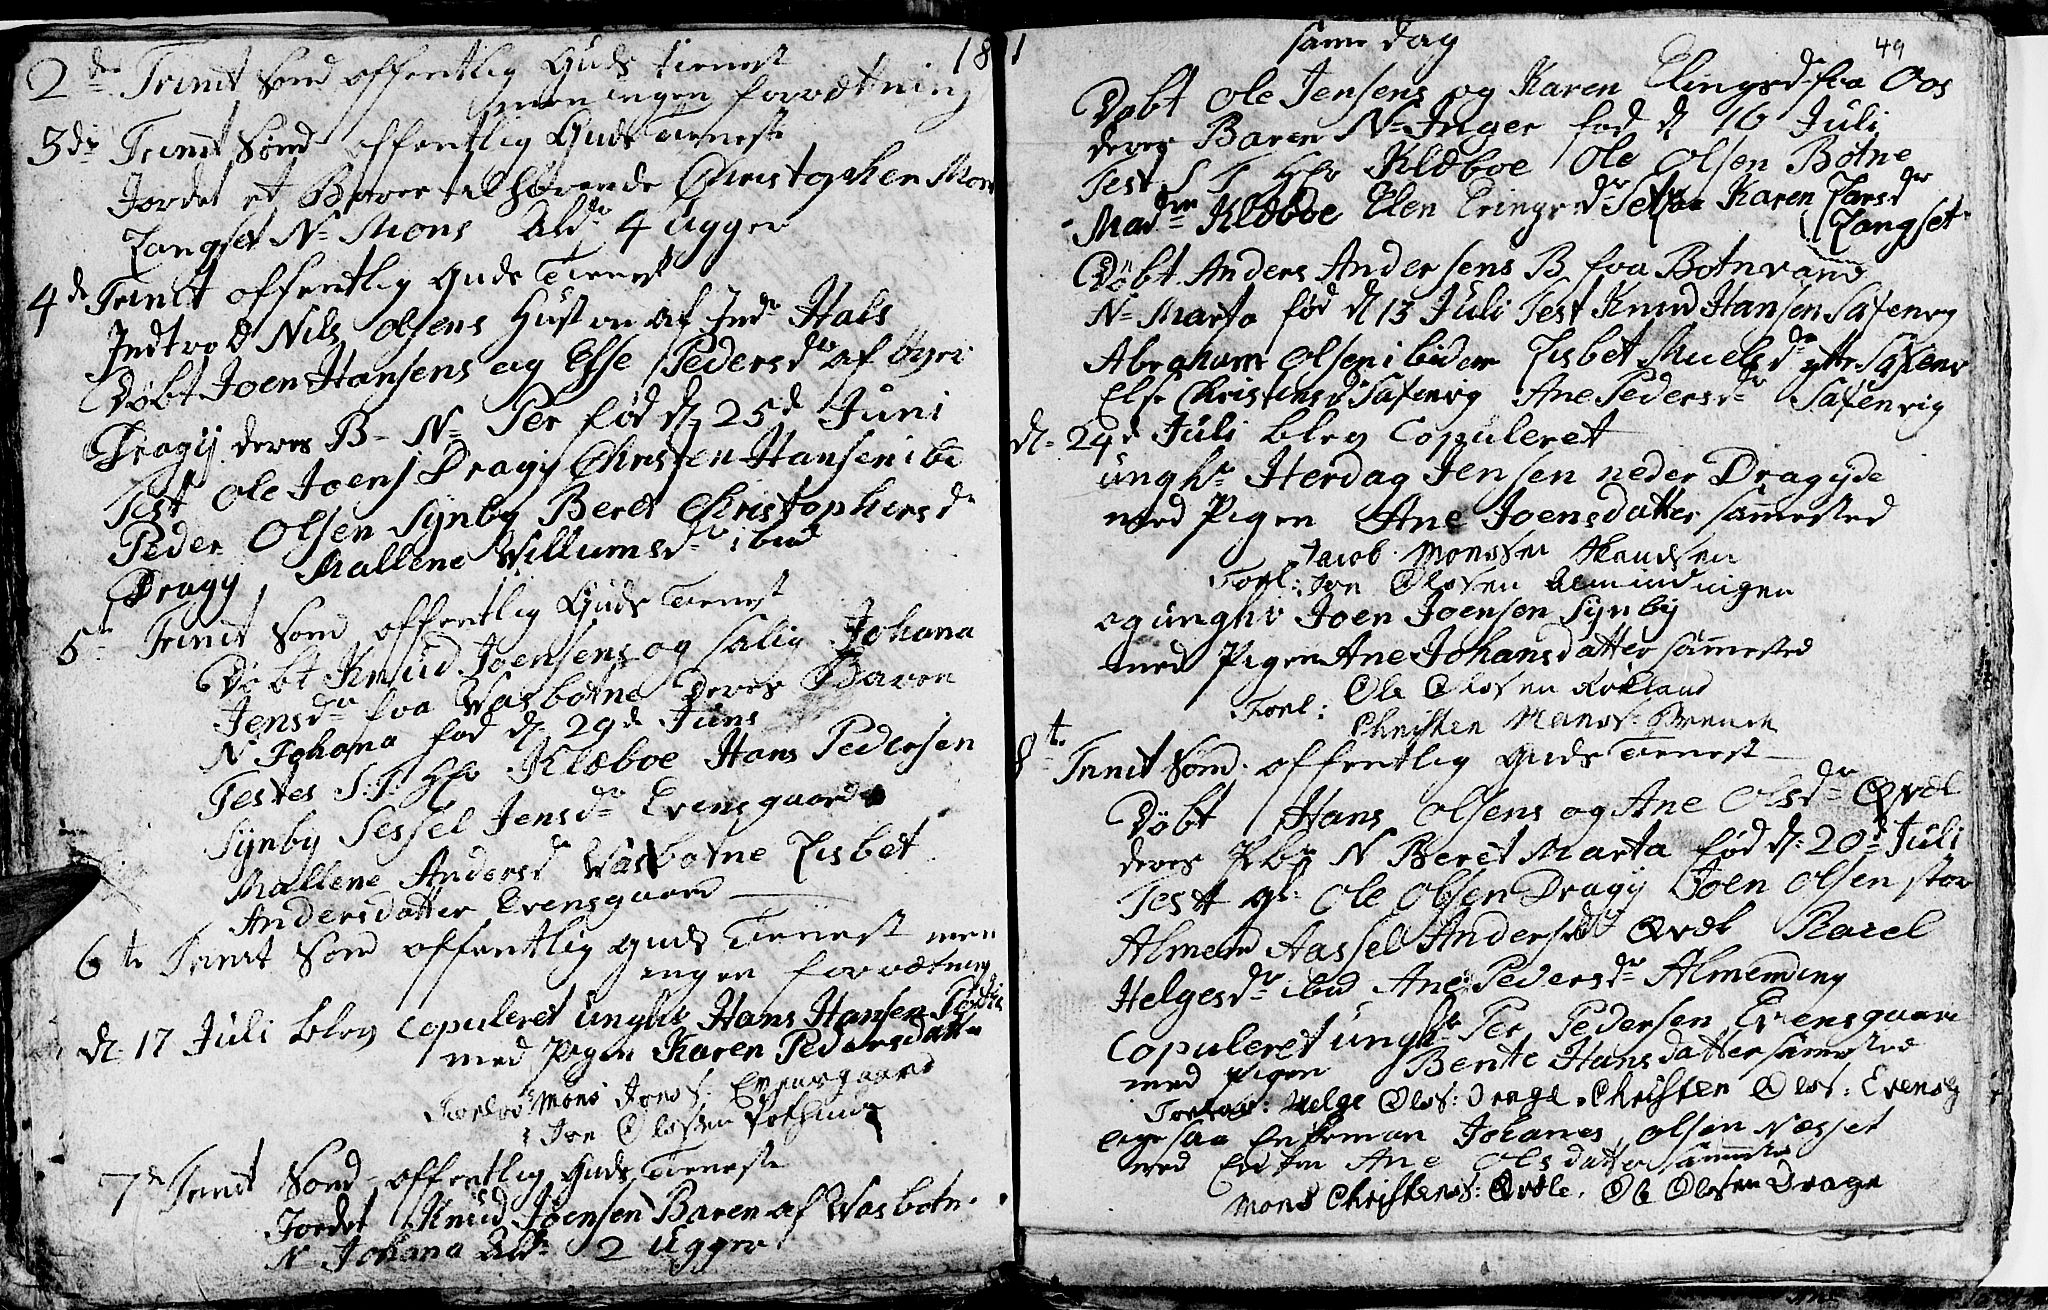 2de Trinit Sønd offentlig Guds tienest 18
men ingen forrætning
3die Trinit Sønd offentlig Guds Tieneste
Jordet et Baren tilhørende Christophen Mons
Langset N= Mons Ald. 4 Ugger
4de Trinit offentlig Guds Tienest
Indtrod Nils Olsens Hustru af Indr Hals
Døbt Joen Hansens og Else Pedersdr af
Dragij deres B- N= Per fød d= 25d Juni
Test Ole Joens Dragij Christen Hansen ibi
Peder Olsen Synby Beret Christophersdr
Dragij, Mallene Willumsdr ibid
5te Trinit Sønd offentlig Guds Tienest
Døbt Knud Joensens og salig Johana
Jensdr fra Wasbotne deres Baren
N Johana fød d= 29de Juni
Testes S: T: Hr Klæboe Hans Pedersen
Synby Sessel Jensdr Evensgaard
Mallene Andersdr Wasbotne Lisbet
Andersdatter Evensgaard
6te Trinit Sønd offentlig Guds Tienest men
ingen forrætning
d= 17 Juli blev Copuleret unghr Hans Hansen
med Pigen Karen Pedersdatter
Mons Joens: Evensgaard
Joe Olesen
7de Trinit Sønd= offentlig Guds Tieneste
Jordet Knud Joensen Baren af Wasbotn
N Johana Ald= 2 Ugger
1 same dag 49
Døbt Ole Jensens og Karen Elingsdr fra Oos
deres Baren N= Inger fød d 16 Juli
Test S T Hr Klæboe Ole Olsen Botne
Madm Klæboe Elen Eringsdr Setsaa Karen Larsdr
Langset
Døbt Anders Andersens B fra Botnvand
N= Marta fød d 13 Juli Test Knud Hansen Saxenvig
Abraham Olsen ibidem Lisbet Muelsdr ytre Saxenv
Else Christensdr Saxenvig Ane Pedersdr Saxenvig
d= 24d Juli blev Copuleret
unghr Herdag Jensen neder Dragijde
med Pigen Ane Joensdatter sammested
Jacob Monssen
Forl: Joe Olesen Almindningen
og unghr Joen Joensen Synby
med Pigen Ane Johansdatter sammested
Forl: Ole Olesen Rokland
Christen
8te Trinit Sønd. offentlig Guds Tienest
Døbt Hans Olsens og Ane Olsdr Qvæl
deres Pb N Beret Marta fød d= 20d Juli
Test gl: Ole Olsen Dragij Joen Olsen stor
Almen Aassel Andersdr Qvæl Karel
Helgesdr ibid Ane Pedersdr Almending
Copuleret unghr Per Pedersen Evensgaard
med Pigen Bente Hansdatter sammested
Forlov: Helge Oles: Drage. Christen Oles: Evensg
ligesaa Enkeman Johanes Olsen Næsset
med Enken Ane Olsdatter sammested
Mons Christens: Qvæle. Ole Olesen Drage